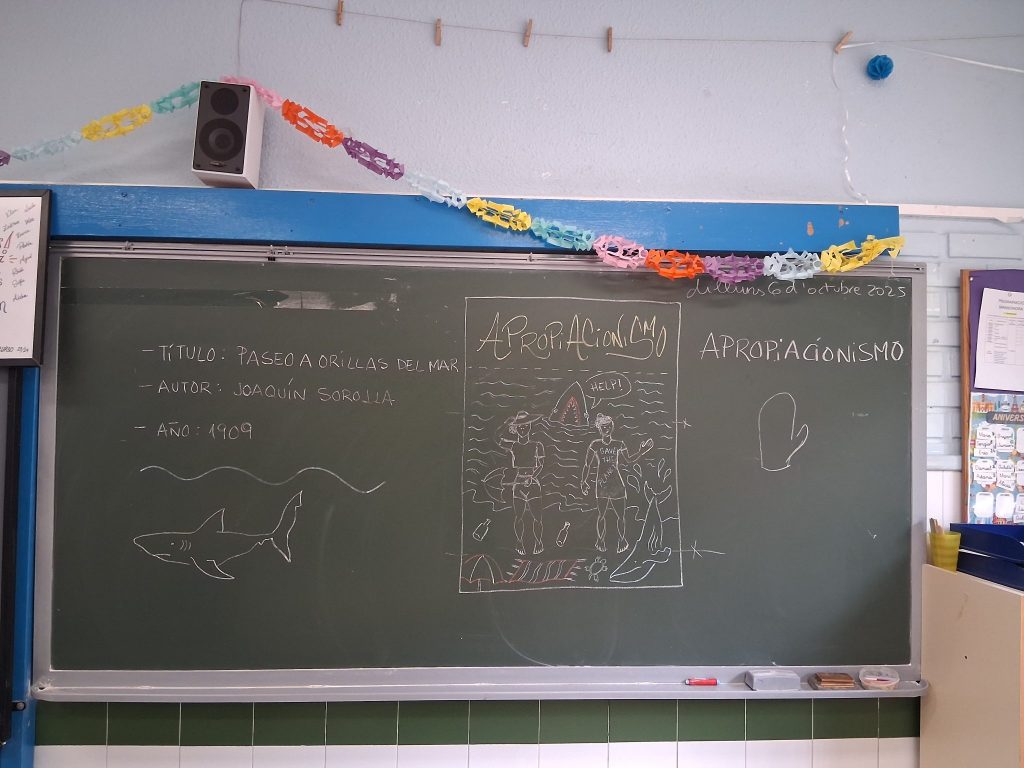 dilluns 6 d'octubre 2025
- TÍTULO: PASEO A ORILLAS DEL MAR
- AUTOR: JOAQUÍN SOROLLA
- AÑO: 1909
APROPIACIONISMO
HELP!
SAVE
THE
APROPIACIONISMO
ANIVERS